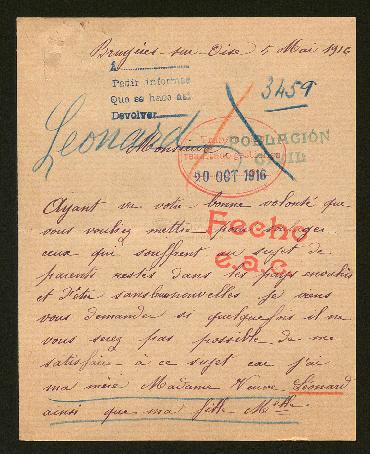 Bruyères-sur-Oise 5 Mai 1916
A
Pedir informes
Que se hace así
Devolver
3459
Leonard
Monsieur
POBLACIÓN
CIVIL
20 OCT 1916
Ayant vu votre bonne volonté que
vous vouliez mettre pour soulager
ceux qui souffrent au sujet de
parents restés dans les pays envahis
et d'être sans nouvelles je viens
vous demander si quelquefois il ne
vous serez pas possible de me
satisfaire à ce sujet car j'ai
ma mère Madame Veuve Léonard
ainsi que ma fille Melle
Fecho
e.a.c.